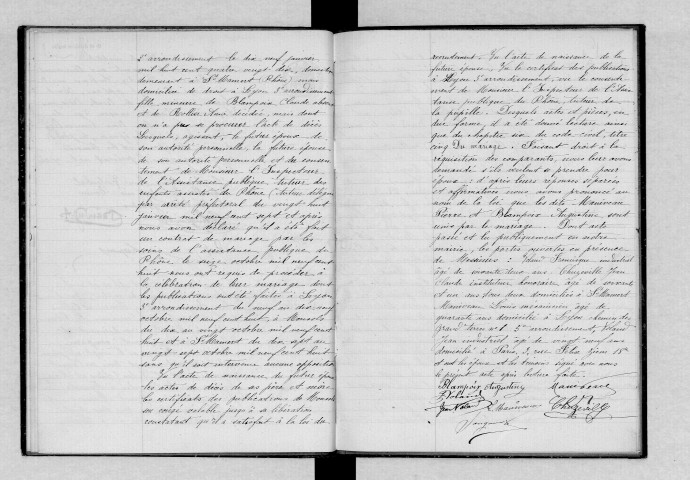 5e arrondissement le dix neuf janvier
mil huit cent quatre vingt dix, domiciliée
demeurant à St Mamert (Rhône) mais
domiciliée de droit à Lyon 3e arrondissement
fille mineure de Blampoix Claude absent
et de Rollier Anna décédée, mais dont
on n'a pu se procurer l'acte de décès
Lesquels, agissant, le futur époux de
son autorité personnelle, la future épouse
de son autorité personnelle et du consen-
tement de Monsieur l'Inspecteur
de l'Assistance publique, tuteur des
enfants assistés du Rhône (tuteur délégué
par arrêté préfectoral du vingt huit
janvier mil neuf cent sept et après
nous avoir déclaré qu'il a été fait
un contrat de mariage par les
soins de l'assistance publique du
Rhône le seize octobre mil neuf cent
huit nous ont requis de procéder à
la célébration de leur mariage dont
les publications ont été faites à Lyon
5e arrondissement du neuf au dix neuf
octobre mil neuf cent huit, à Monsols
du dix au vingt octobre mil neuf cent
huit et à St Mamert du dix sept au
vingt-sept octobre mil neuf cent huit
sans qu'il soit intervenu aucune opposition
Vu l'acte de naissance du futur époux
les actes de décès de ses père et mère
les certificats des publications de Monsols
un congé valable jusqu'à sa libération
constatant qu'il a satisfait à la loi du
recrutement. Vu l'acte de naissance de la
future épouse. Vu le certificat des publications
à Lyon 5e arrondissement, vu le consente-
ment de Monsieur l'Inspecteur de l'Assis-
tance publique du Rhône, tuteur de
la pupille. Desquels actes et pièces, en
due forme, il a été donné lecture ainsi
que du chapitre six du code civil, titre
cinq Du mariage. Faisant droit à la
réquisition des comparants, nous leur avons
demandé s'ils veulent se prendre pour
époux: d'après leurs réponses séparées
et affirmatives nous avons prononcé au
nom de la loi que les dits Manéveau
Pierre et Blampoix Augustine sont
unis par le mariage. Dont acte
passé et lu publiquement en notre
mairie, les portes ouvertes en présence
de Messieurs: industriel
âgé de soixante deux ans Chuzeville Jean
Claude instituteur honoraire âgé de soixante
et un ans tous deux domiciliés à St Mamert
Louis mécanicien âgé de
quarante ans domicilié à Lyon
no 1 5e arrondissement,
Jean industriel âgé de vingt neuf ans
domicilié à Paris, 3, rue Félix 18e
et ont les époux et les témoins signé avec nous
le présent acte après lecture faite.
Blampoix Augustine
Chuzeville